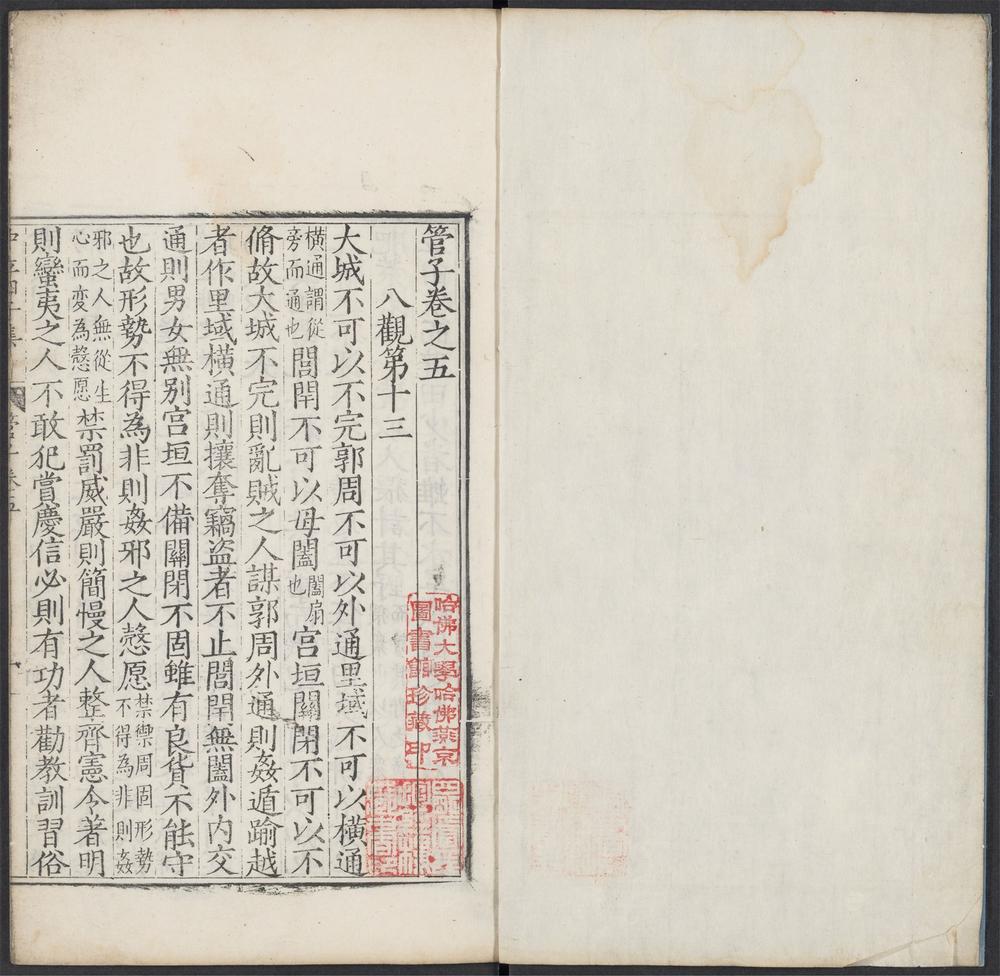 管子卷之五
八觀第十三
大城不可以不完郭周不可以外通里域不可以橫通
橫通謂從
旁而通也
閭閈不可以毋闔
闔扇
也
宫垣關閉不可以不
脩故大城不完則亂賊之人謀郭周外通則姦遁踰越
者作里域橫通則攘奪竊盜者不止閭閈無闔外内交
通則男女無别宫垣不備關閉不固雖有良貨不能守
也故形勢不得為非則姦邪之人慤愿
禁禦周固形勢
不得為非則姦
邪之人無從生
心而変為慤愿
禁罰威嚴則簡慢之人整齊憲令著明
則蠻夷之人不敢犯賞慶信必則有功者勸教訓習俗
哈佛大學哈佛燕京
圖書館珍藏印